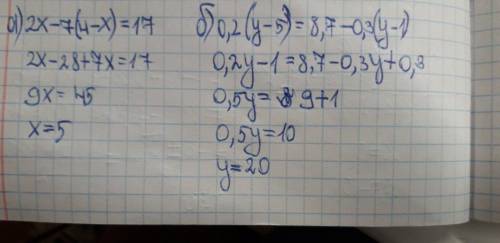 а) 2x-7(4-x)=17
2x-28+7x=17
9x=45
x=5
б) 0,2(y-5)=8,7-0,3(y-1)
0,2y-1=8,7-0,3y+0,3
0,5y=9+1
0,5y=10
y=20